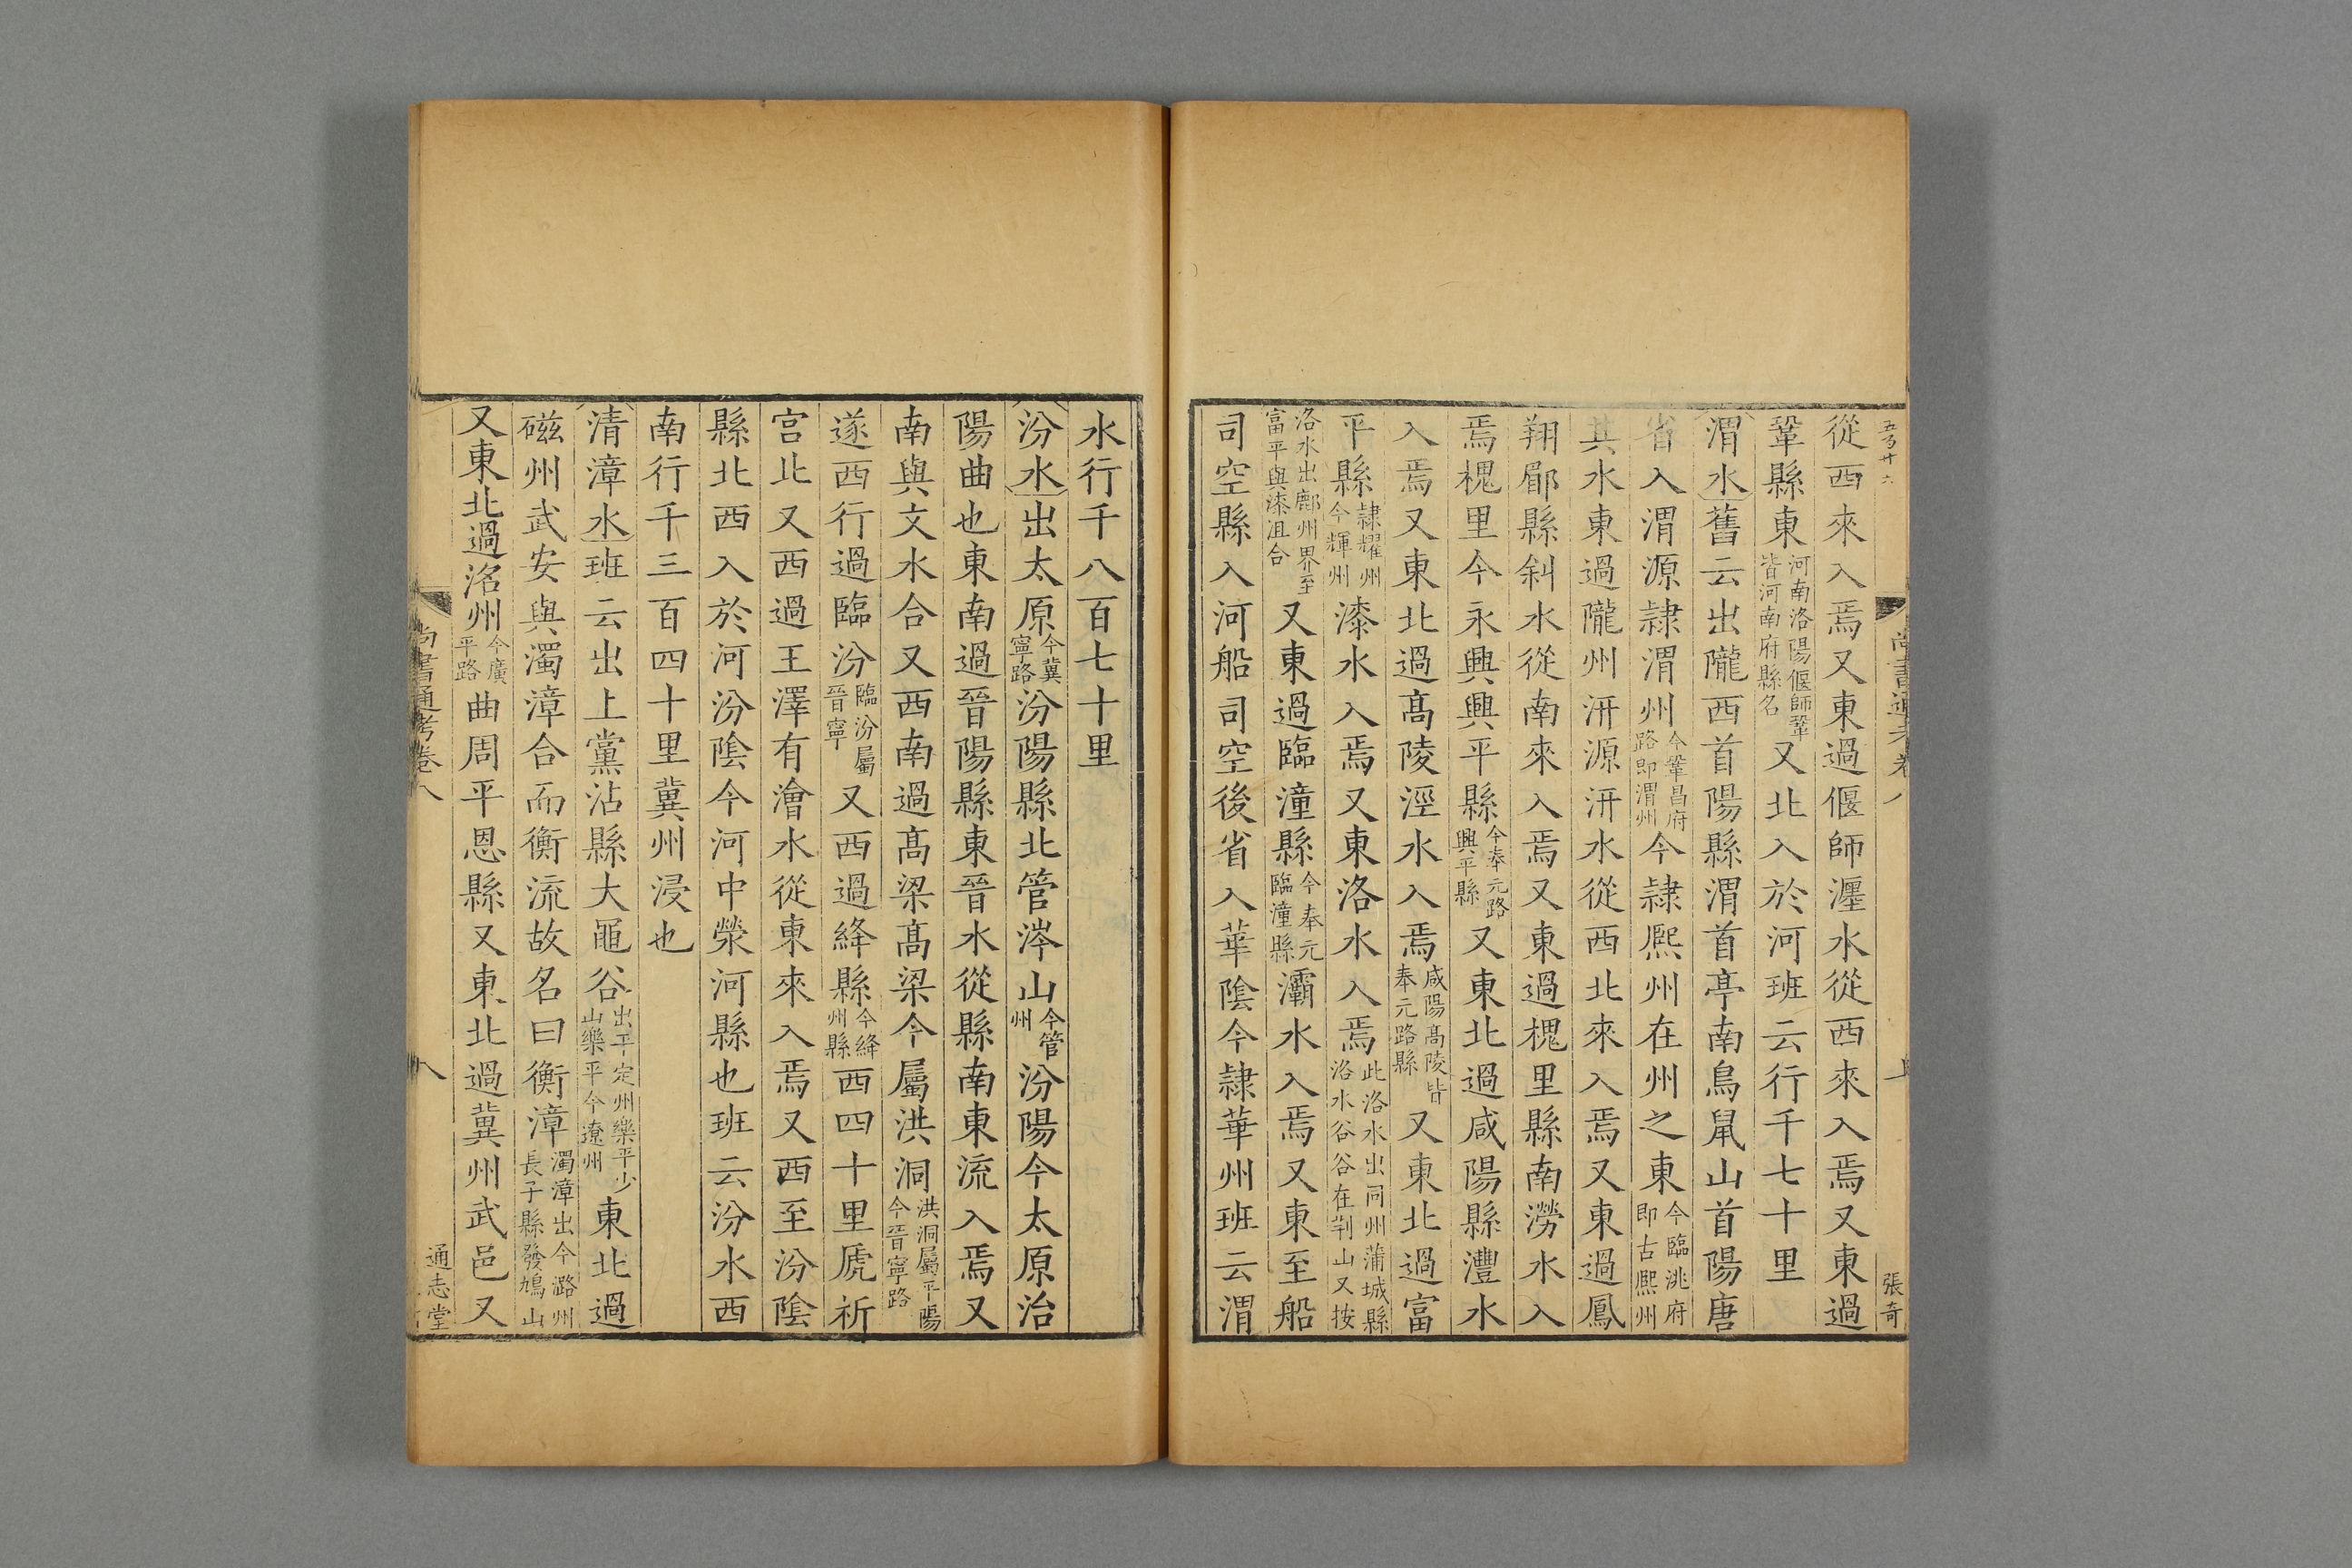 五百廿六
尚書通考卷八
張奇
從西來入焉又東過偃師瀍水從西來入焉又東過
鞏縣東河南洛陽偃師鞏皆河南府縣名又北入於河班云行千七十里
渭水舊云出隴西首陽縣渭首亭南鳥鼠山首陽唐
省入渭源隷渭州今鞏昌府路即渭州今隷熈州在州之東今臨洮府即古熈州
其水東過隴州汧源汧水從西北來入焉又東過鳳
翔郿縣斜水從南來入焉又東過槐里縣南澇水入
焉槐里今永興興平縣今奉元路興平縣又東北過咸陽縣灃水
入焉又東北過髙陵涇水入焉咸陽髙陵皆奉元路縣又東北過富
平縣隷耀州今輝州漆水入焉又東洛水入焉此洛水出同州蒲城縣洛水谷谷在荆山又按
洛水出鄜州界至富平與漆沮合又東過臨潼縣今奉元臨潼縣灞水入焉又東至船
司空縣入河船司空後省入華陰今隷華州班云渭
水行千八百七十里
汾水出太原今冀寧路汾陽縣北管涔山今管州汾陽今太原治
陽曲也東南過晉陽縣東晉水從縣南東流入焉又
南與文水合又西南過髙梁髙梁今屬洪洞洪洞屬平陽今晉寧路
遂西行過臨汾臨汾屬晉寧又西過絳縣今絳州縣西四十里虒祈
宫北又西過王澤有澮水從東來入焉又西至汾陰
縣北西入於河汾陰今河中滎河縣也班云汾水西
南行千三百四十里冀州浸也
清漳水班云出上黨沾縣大黽谷出平定州樂平少山樂平今遼州東北過
磁州武安與濁漳合而衡流故名曰衡漳濁漳出今潞州長子縣發鳩山
又東北過洺州今廣平路曲周平恩縣又東北過冀州武邑又
尚書通考卷八
八
通志堂